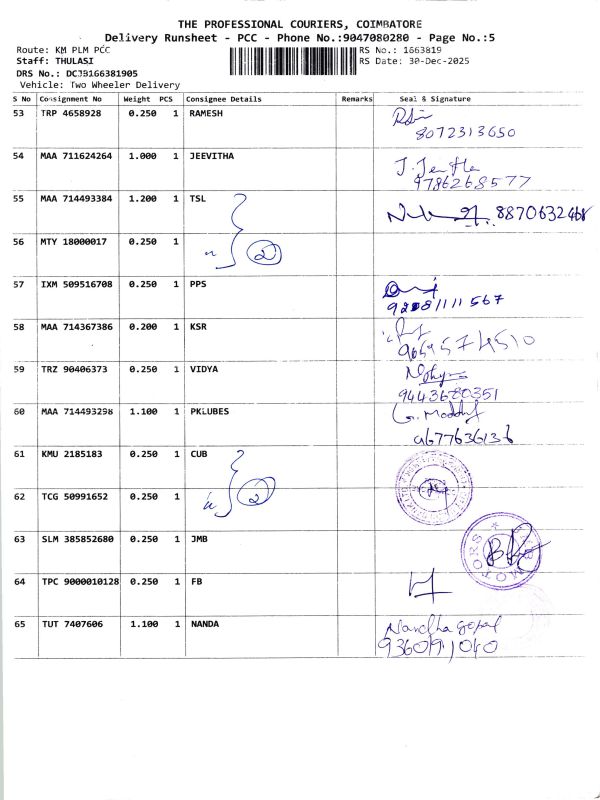 THE PROFESSIONAL COURIERS, COIMBATORE
Delivery Runsheet - PCC - Phone No.:9047080280 - Page No.:5
Route: KM PLM PCC RS No.: 1663819
Staff: THULASI RS Date: 30-Dec-2025
DRS No.: DCJB166381905
Vehicle: Two Wheeler Delivery
S No Consignment No Weight PCS Consignee Details Remarks Seal & Signature
53 TRP 4658928 0.250 1 RAMESH
8072313650
54 MAA 711624264 1.000 1 JEEVITHA
9786268577
55 MAA 714493384 1.200 1 TSL
56 MTY 18000017 0.250 1 2
57 IXM 509516708 0.250 1 PPS
58 MAA 714367386 0.200 1 KSR
9659574510
59 TRZ 90406373 0.250 1 VIDYA
9443680351
60 MAA 714493298 1.100 1 PKLUBES
9677636136
61 KMU 2185183 0.250 1 CUB
62 TCG 50991652 0.250 1 2
63 SLM 385852680 0.250 1 JMB
MOTORS
64 TPC 9000010128 0.250 1 FB
65 TUT 7407606 1.100 1 NANDA
Nandha gopal